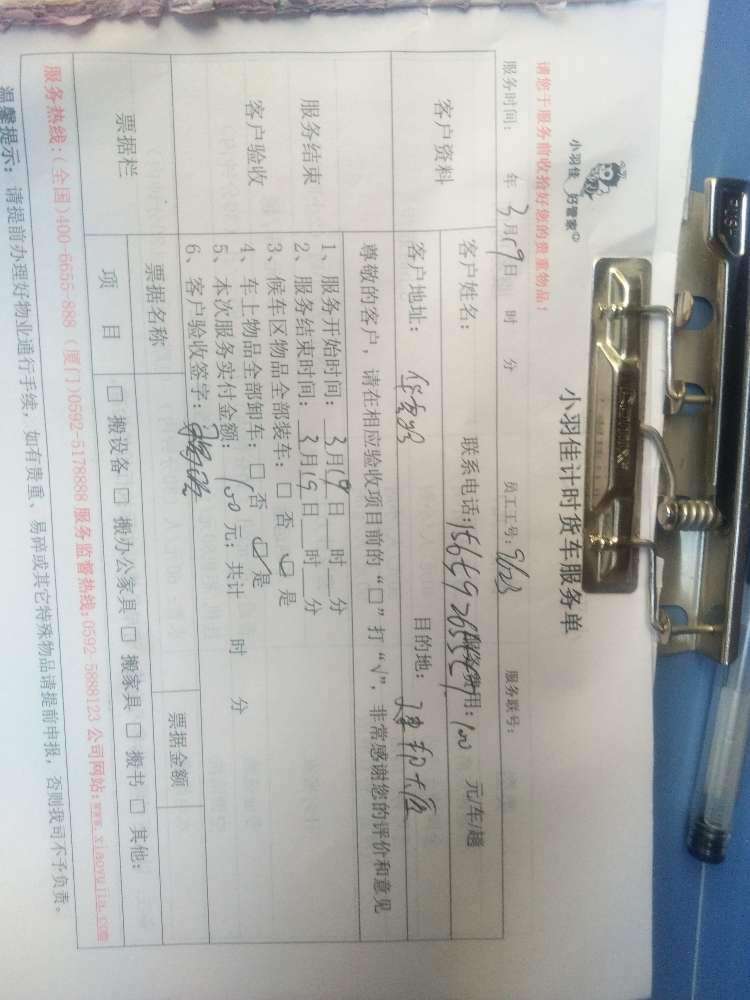 小羽佳 好管家
小羽佳计时货车服务单
请您于服务前收拾好您的贵重物品!
服务时间: 年 3月19日 时 分 员工工号: 9623 服务联号:
客户资料
客户姓名: 联系电话: 服务费用: 100 元/车/趟
客户地址: 目的地: 大厦
尊敬的客户,请在相应验收项目前的“□”打“√”,非常感谢您的评价和意见
服务结束
客户验收
1、服务开始时间: 3月19日 时 分
2、服务结束时间: 3月19日 时 分
3、候车区物品全部装车: □ 否 ☑ 是
4、车上物品全部卸车: □ 否 ☑ 是
5、本次服务实付金额: 100 元; 共计 时 分
6、客户验收签字:
票据栏
票据名称 票据金额
项 目 □ 搬设备 □ 搬办公家具 □ 搬家具 □ 搬书 □ 其他:
服务热线:(全国)400-6655-888 (厦门)0592-5178888 服务监督热线:0592-5888123 公司网站:www.xiaoyujia.com
温馨提示: 请提前办理好物业通行手续, 如有贵重、易碎或其它特殊物品请提前申报, 否则我司不予负责。